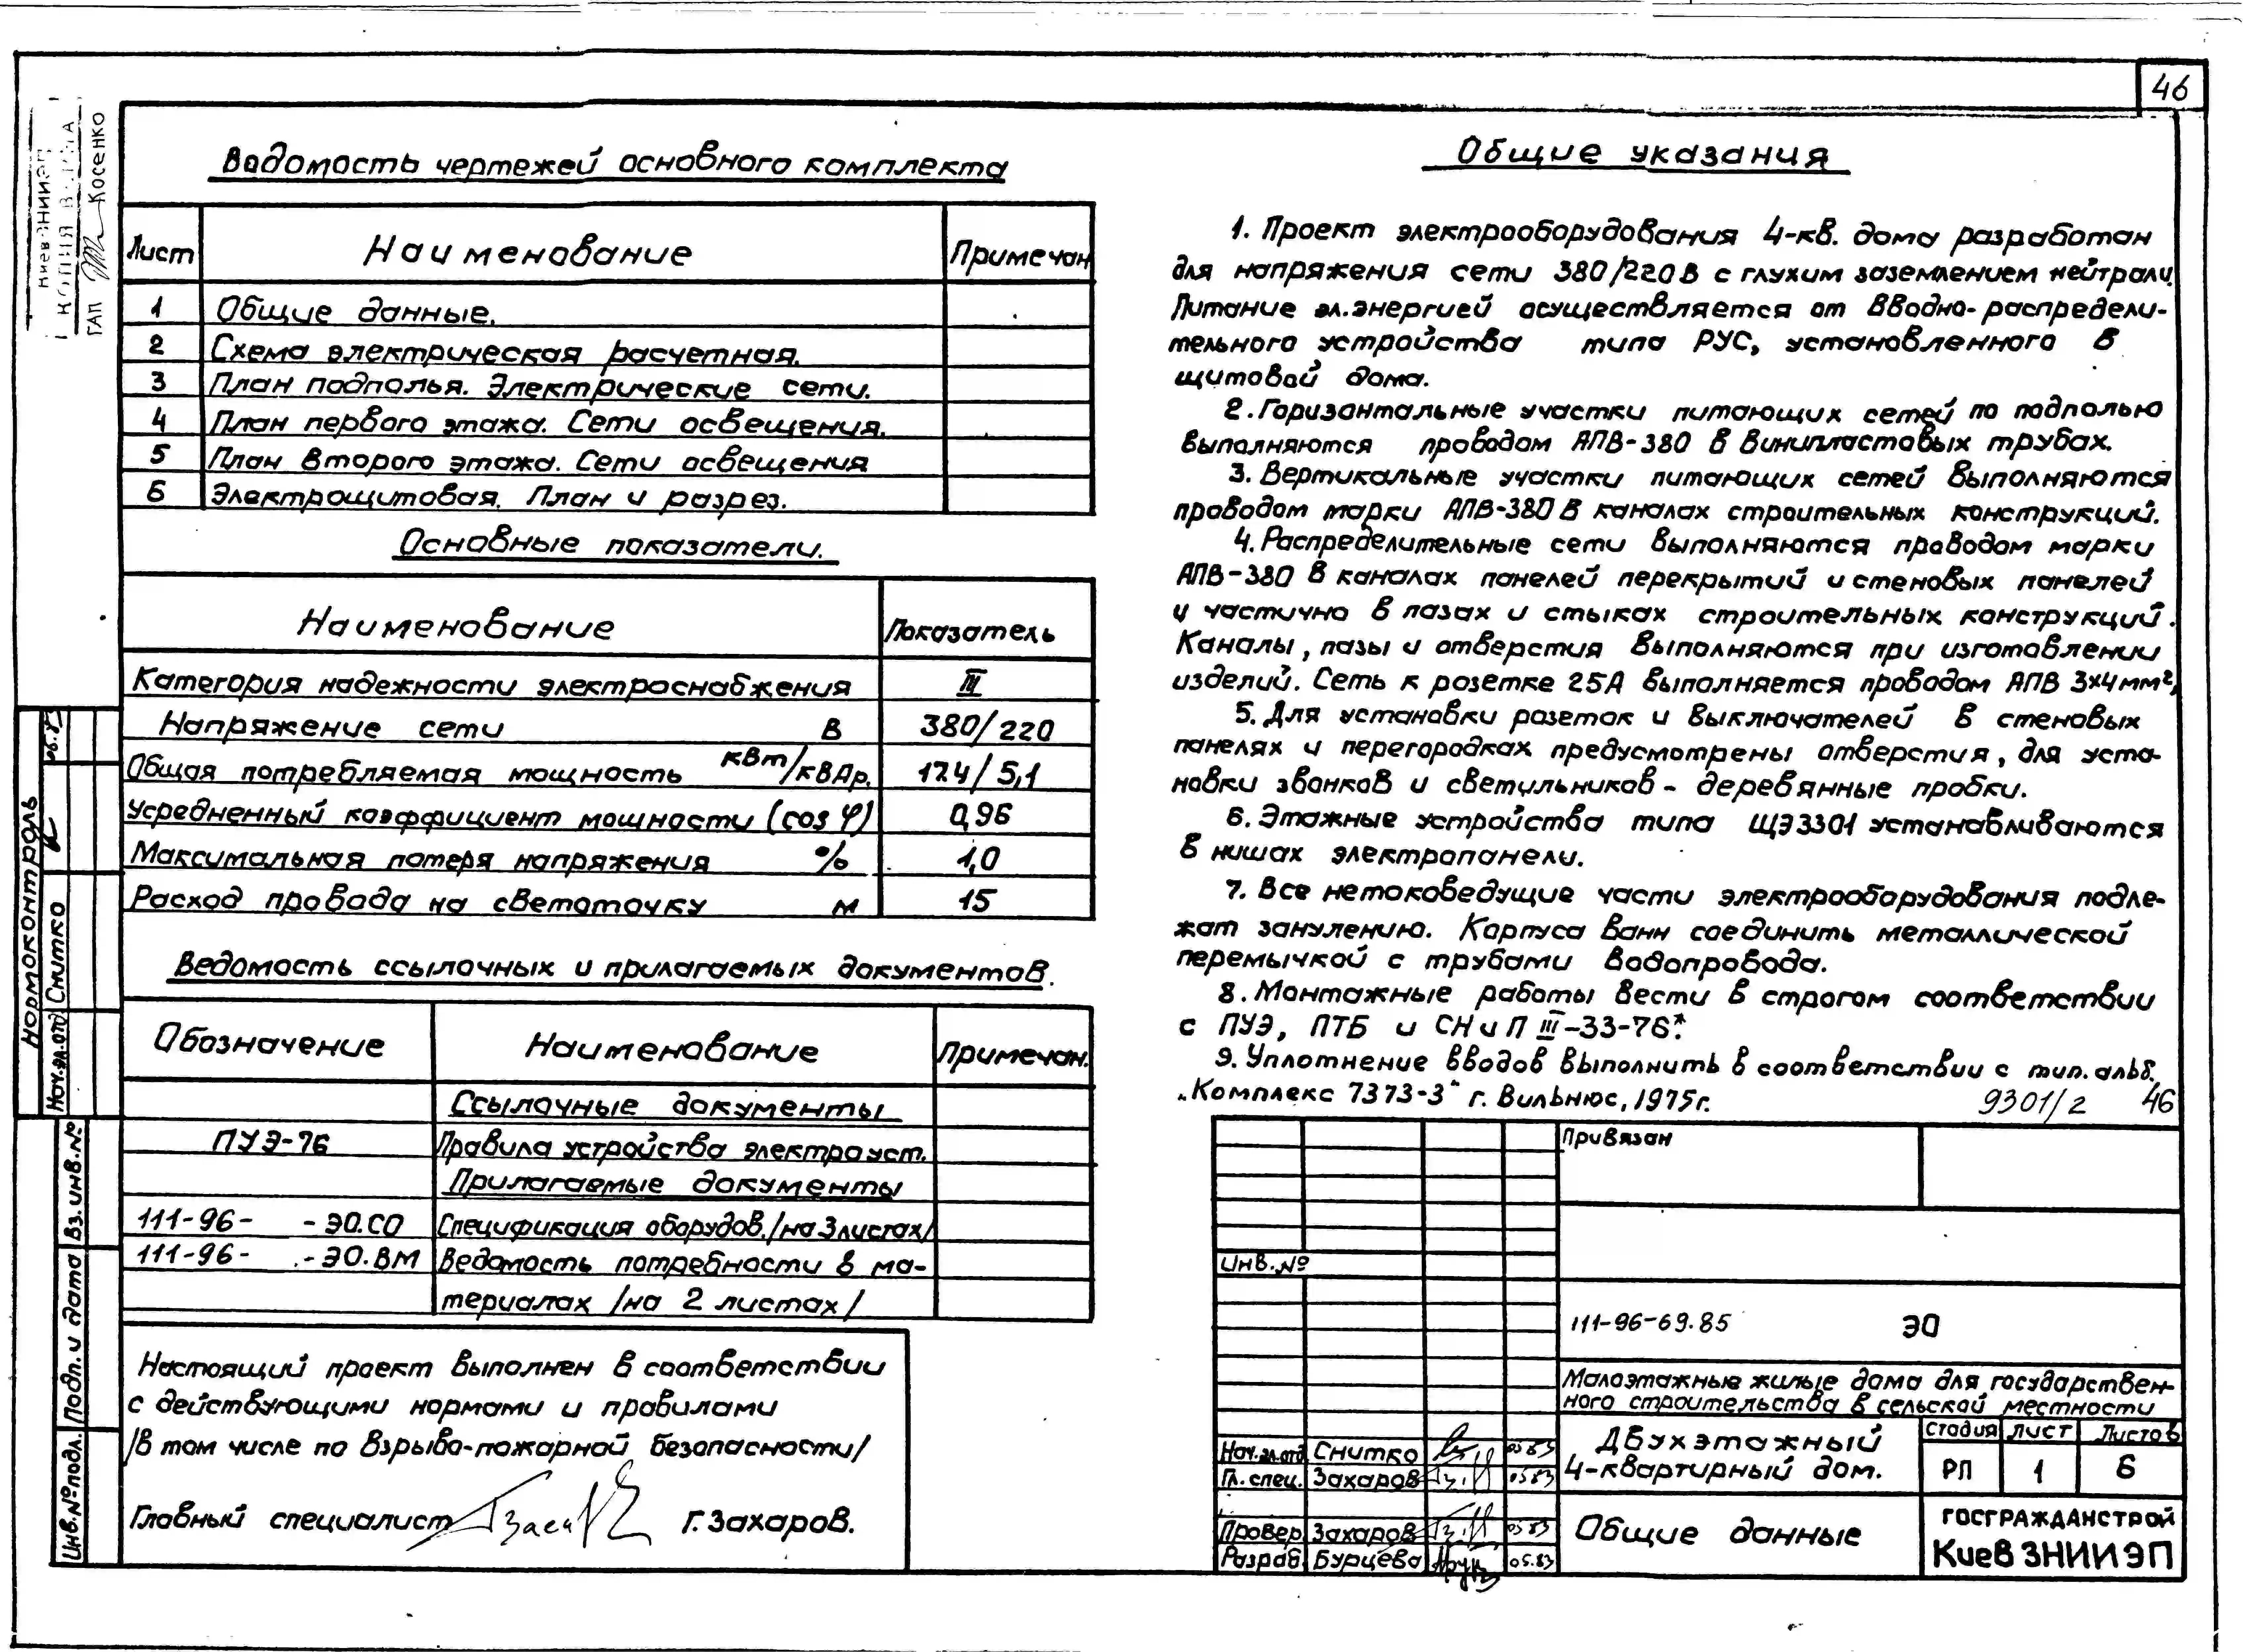 46
Косенко
ГАП
Ведомость чертежей основного комплекта
Лист Наименование Примечан
1 Общие данные.
2 Схема электрическая расчетная.
3 План подполья. Электрические сети.
4 План первого этажа. Сети освещения.
5 План второго этажа. Сети освещения
6 Электрощитовая. План и разрез.
Основные показатели.
Наименование Показатель
Категория надежности электроснабжения III
Напряжение сети В 380/220
Общая потребляемая мощность кВт/кВАр. 17.4/5,1
Усредненный коэффициент мощности (cos φ) 0,96
Максимальная потеря напряжения % 1,0
Расход провода на светоточку м 15
Ведомость ссылочных и прилагаемых документов.
Обозначение Наименование Примечан.
Ссылочные документы
ПУЭ-76 Правила устройства электроуст.
Прилагаемые документы
111-96- -ЭО.СО Спецификация оборудов./на 3 листах/
111-96- .-ЭО.ВМ Ведомость потребности в ма-
териалах /на 2 листах/
Настоящий проект выполнен в соответствии
с действующими нормами и правилами
/в том числе по взрыво-пожарной безопасности/
Главный специалист Г. Захаров.
Общие указания
1. Проект электрооборудования 4-кв. дома разработан
для напряжения сети 380/220 В с глухим заземлением нейтрали.
Питание эл.энергией осуществляется от вводно-распредели-
тельного устройства типа РУС, установленного в
щитовой дома.
2. Горизонтальные участки питающих сетей по подполью
выполняются проводом АПВ-380 в винипластовых трубах.
3. Вертикальные участки питающих сетей выполняются
проводом марки АПВ-380 в каналах строительных конструкций.
4. Распределительные сети выполняются проводом марки
АПВ-380 в каналах панелей перекрытий и стеновых панелей
и частично в пазах и стыках строительных конструкций.
Каналы, пазы и отверстия выполняются при изготовлении
изделий. Сеть к розетке 25А выполняется проводом АПВ 3х4мм²,
5. Для установки розеток и выключателей в стеновых
панелях и перегородках предусмотрены отверстия, для уста-
новки звонков и светильников - деревянные пробки.
6. Этажные устройства типа ЩЭ3301 устанавливаются
в нишах электропанели.
7. Все нетоковедущие части электрооборудования подле-
жат занулению. Корпуса ванн соединить металлической
перемычкой с трубами водопровода.
8. Монтажные работы вести в строгом соответствии
с ПУЭ, ПТБ и СНиП III-33-76*.
9. Уплотнение вводов выполнить в соответствии с тип. альб.
„Комплекс 7373-3" г. Вильнюс, 1975г.
9301/2 46
Привязан
Инв.№
111-96-69.85 ЭО
Малоэтажные жилые дома для государствен-
ного строительства в сельской местности
Нач.эл.отд Снитко 05.83
Гл. спец. Захаров 05.83
Провер. Захаров 05.83
Разраб. Бурцева 05.83
Двухэтажный
4-квартирный дом.
Стадия Лист Листов
РП 1 6
Общие данные
ГОСГРАЖДАНСТРОЙ
КиевЗНИИЭП
Нормоконтроль
Нач.эл.отд Снитко
Вз. инв. №
Подп. и дата
Инв.№ подл.